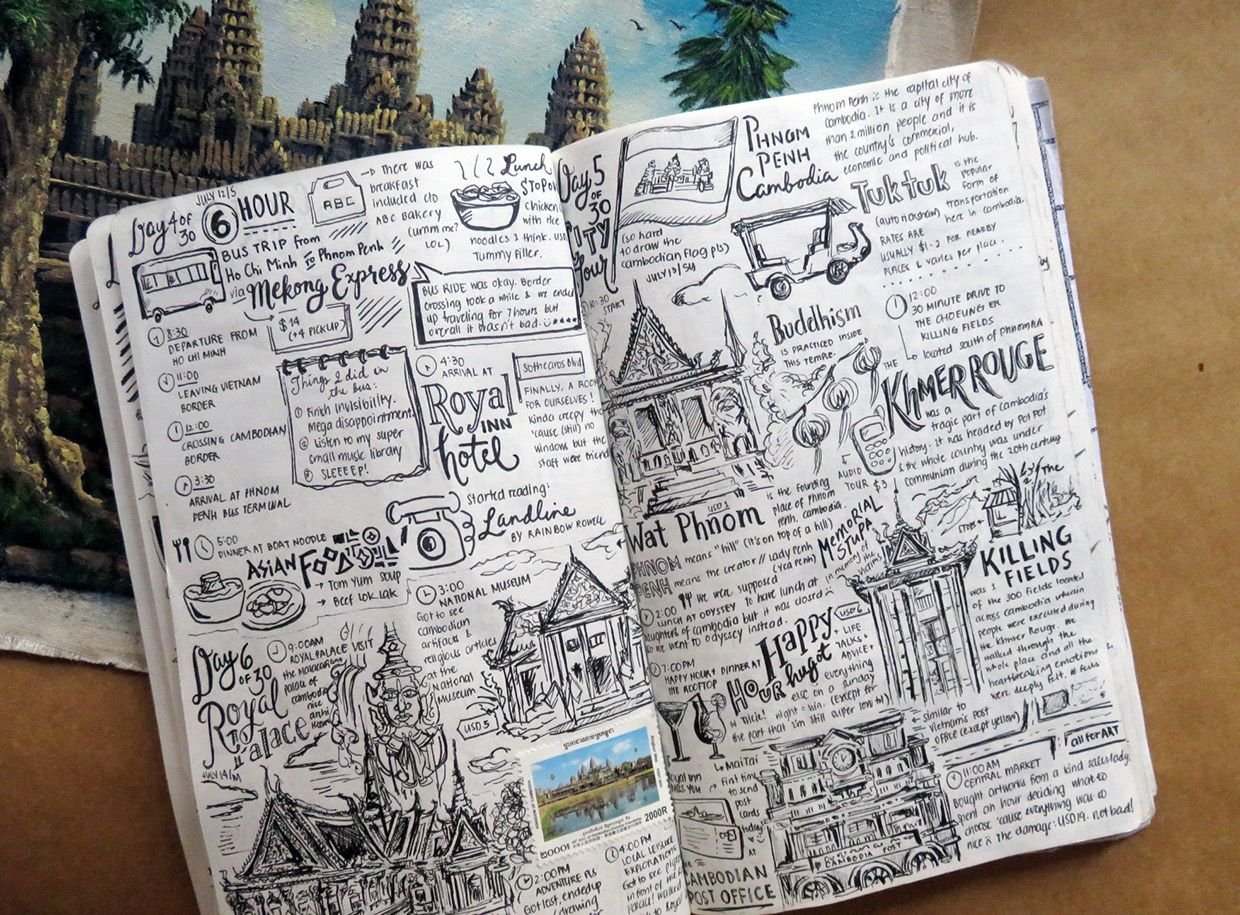 Day 4 of 30
JULY 12/S
6 HOUR
BUS TRIP from
Ho Chi Minh to Phnom Penh
via Mekong Express
$14
(+4 PICKUP)
→ there was
breakfast
included c/o
ABC Bakery
(umm me?
LOL)
ABC
Lunch
chicken
with rice
noodles I think. USD
Tummy filler.
BUS RIDE was okay. Border
crossing took a while & we ended
up traveling for 7 hours but
overall it wasn't bad.
8:30
DEPARTURE FROM
HO CHI MINH
11:00
LEAVING VIETNAM
BORDER
12:00
CROSSING CAMBODIAN
BORDER
3:30
ARRIVAL AT PHNOM
PENH BUS TERMINAL
Things I did in
the bus:
① Finish Invisibility.
Mega disappointment
② Listen to my super
small music library
③ SLEEEP!
4:30
ARRIVAL AT
Royal
INN
hotel
Sothearos blvd
FINALLY, A ROOM
FOR OURSELVES!
Kinda creepy tho
'cause (still) no
window but the
staff were friend
started reading:
Landline
BY RAINBOW ROWELL
5:00
DINNER AT BOAT NOODLE
ASIAN FOOD
→ Tom Yum Soup
→ Beef Lok Lak
3:00
NATIONAL MUSEUM
Got to see
cambodian
artifacts &
religious articles
at the
National
Museum
USD 5
Day 6
of 30
Royal
Palace
JULY 14/M
9:00AM
ROYAL PALACE VISIT
2000R
2:00PM
ADVENTURE PLS
Got lost, ended up
drawing
4:00 PM
LOCAL LEISURE
EXPLORATIONS
Got to see
infront of the
Palace! walked
to Royal
Day 5
of
30
CITY
Tour
(so hard
to draw the
cambodian flag pls)
JULY 13/SU
10:30
START
PHNOM
PENH
Cambodia
Phnom Penh is the capital city of
Cambodia. It is a city of more
than 2 million people and it is
the country's commercial,
economic and political hub.
TUKTUK is the
popular
form of
(auto rickshaw) transportation
here in cambodia.
RATES ARE
USUALLY $1-2 FOR NEARBY
PLACES & varies per place
Buddhism
IS PRACTICED INSIDE
THIS TEMPLE.
12:00
30 MINUTE DRIVE TO
THE CHOEUNG EK
KILLING FIELDS
located south of Phnom Penh
THE
KHMER ROUGE
was a
tragic part of Cambodia's
history. It was headed by Pol Pot
& the whole country was under
communism during the 20th century
AUDIO
TOUR $3
USD 1
Wat Phnom
is the founding
place of Phnom
Penh, Cambodia
PHNOM means "hill" (it's on top of a hill)
PENH means the creator // Lady Penh
(Yea Penh)
MEMORIAL
STUPA
in memory of
the victims
2:00
LUNCH AT ODYSSEY
we were supposed
to have lunch at
daughters of cambodia but it was closed
so we went to odyssey instead.
The
KILLING
FIELDS
was 1
of the 300 fields located
across cambodia wherein
people were executed during
the Khmer Rouge. We
walked through the
whole place and all the
heartbreaking emotions
were deeply felt. # feels
7:00PM
HAPPY HOUR & DINNER AT
THE ROOFTOP
Happy
HOUR hugot
USD 6
+ LIFE
TALKS +
ADVICE +
everything
else on a Sunday
night = win. (except for
the part that I'm still super low bat)
Mai Tai
First time
to send
post
cards
today
CAMBODIAN
POST OFFICE
CAMBODIA POST
← similar to
Vietnam's post
office (except yellow)
all for ART
11:00AM
CENTRAL MARKET
Bought artworks from a kind saleslady.
Spent an hour deciding what to
choose 'cause everything was so
nice the damage: USD 19. not bad!